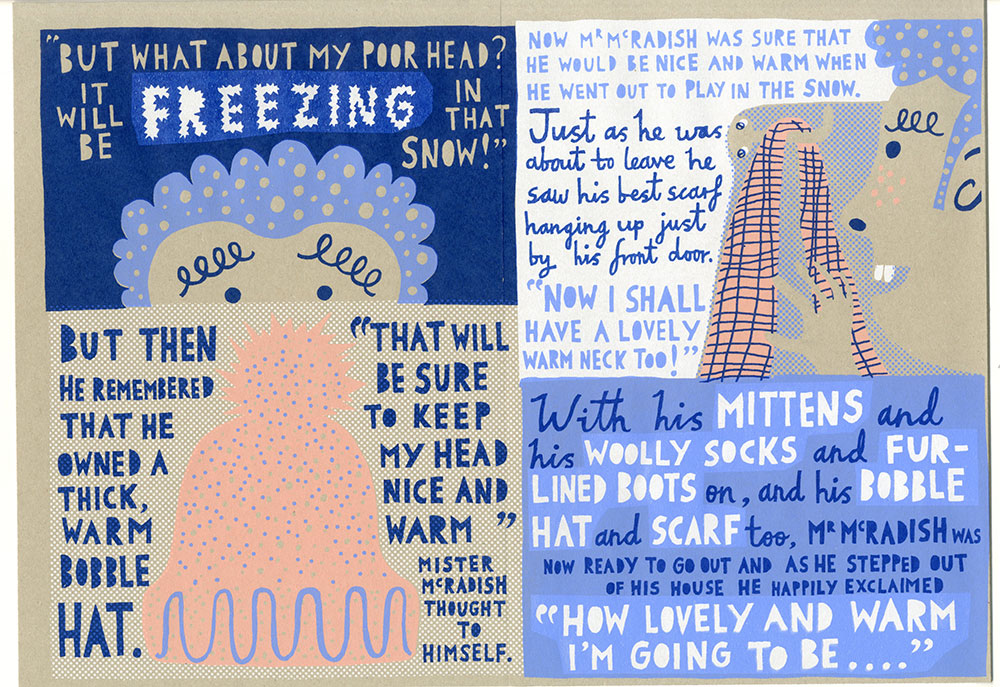 "BUT WHAT ABOUT MY POOR HEAD?
IT WILL BE
FREEZING
IN THAT SNOW!"
BUT THEN
HE REMEMBERED
THAT HE
OWNED A
THICK,
WARM
BOBBLE
HAT.
"THAT WILL
BE SURE
TO KEEP
MY HEAD
NICE AND
WARM"
MISTER
McRADISH
THOUGHT
TO
HIMSELF.
NOW Mr McRADISH WAS SURE THAT
HE WOULD BE NICE AND WARM WHEN
HE WENT OUT TO PLAY IN THE SNOW.
Just as he was
about to leave he
saw his best scarf
hanging up just
by his front door.
"NOW I SHALL
HAVE A LOVELY
WARM NECK TOO!"
With his MITTENS and
his WOOLLY SOCKS and FUR-
LINED BOOTS on, and his BOBBLE
HAT and SCARF too, Mr McRADISH WAS
NOW READY TO GO OUT AND AS HE STEPPED OUT
OF HIS HOUSE HE HAPPILY EXCLAIMED
"HOW LOVELY AND WARM
I'M GOING TO BE...."